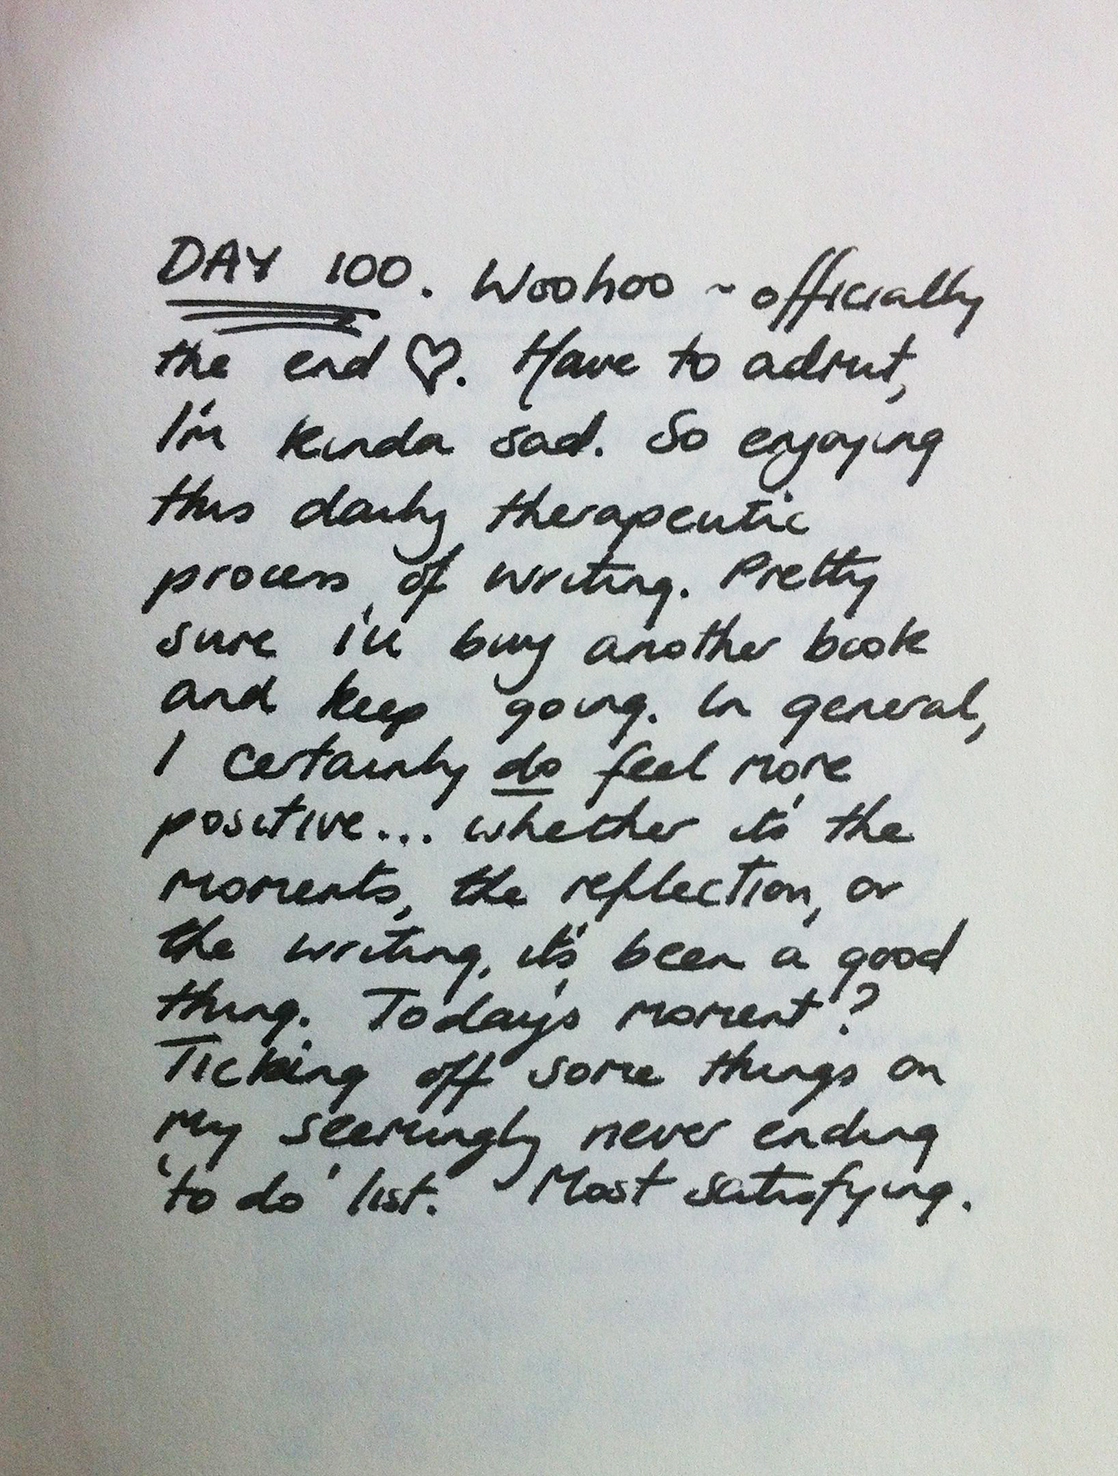 DAY 100. Woohoo ~ officially
the end ♡. Have to admit,
I'm kinda sad. So enjoying
this daily therapeutic
process of writing. Pretty
sure i'll buy another book
and keep going. In general,
I certainly do feel more
positive... whether it's the
moments, the reflection, or
the writing, it's been a good
thing. Today's moment?
Ticking off some things on
my seemingly never ending
'to do' list. Most satisfying.